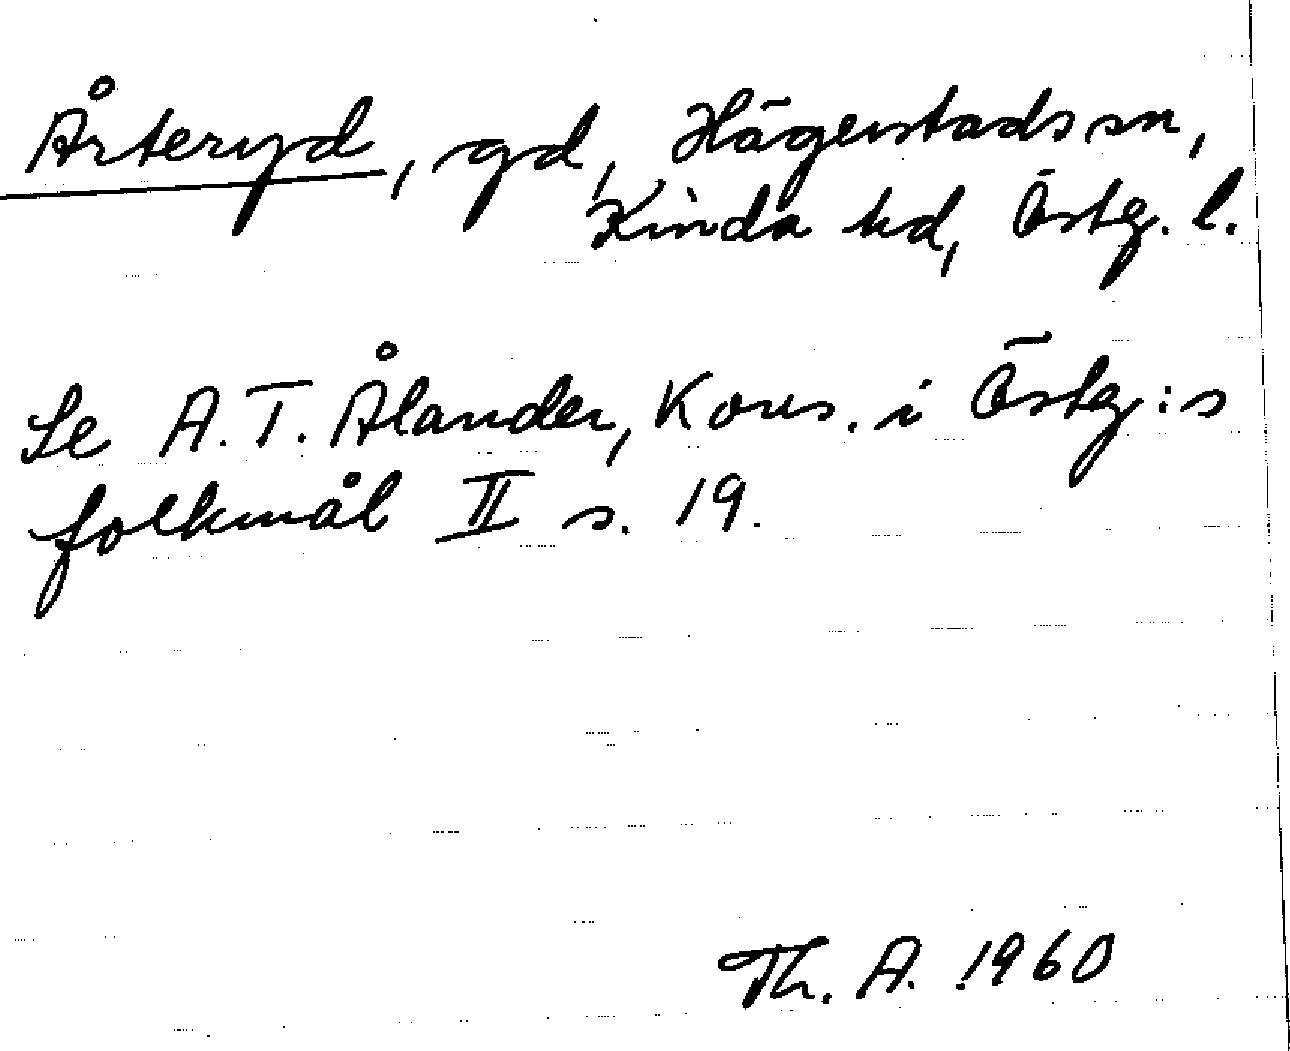 Årteryd, gd, Hägerstads sn,
Kinda hd, Östg. l.
Se A.T. Ålander, Kons. i Östg:s
folkmål II s. 19.
Th. A. 1960